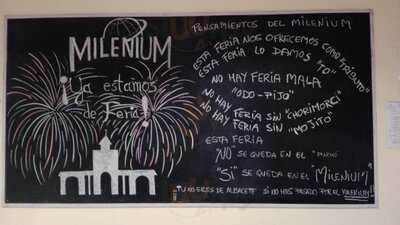 MILENIUM
¡Ya estamos
de Feria!
PENSAMIENTOS DEL MILENIUM
ESTA FERIA NOS OFRECEMOS COMO "TRIBUTO"
ESTA FERIA LO DAMOS "TO"
NO HAY FERIA MALA
"ODO-PIJO"
NO HAY FERIA SIN "CHORIMORCI"
NO HAY FERIA SIN "MOJITO"
ESTA FERIA
"NO" SE QUEDA EN EL
"SI" SE QUEDA EN EL MILENIUM
¡¡TU NO ERES DE ALBACETE SI NO HAS PASADO POR EL MILENIUM!!